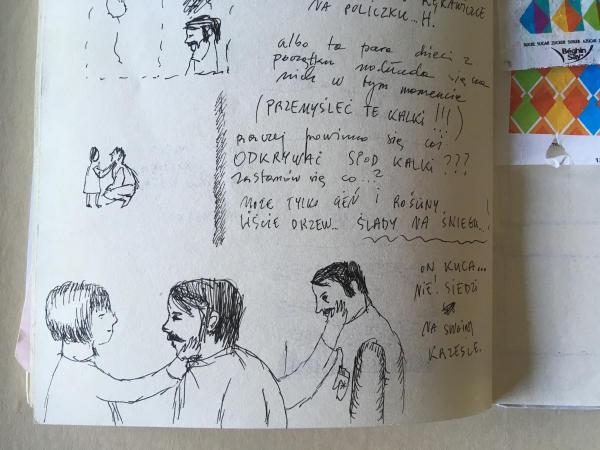 RĘKAWICZCE
NA POLICZKU.. H.
albo ta para dzieci z
początku się na
nich w tym momencie
(PRZEMYŚLEĆ TE KALKI !!!)
raczej powinno się coś
ODKRYWAĆ SPOD KALKI ???
zastanów się co...?
MOŻE TYLKO CIEŃ I ROŚLINY
LIŚCIE DRZEW.. ŚLADY NA ŚNIEGU..!
ON KUCA...
NIE! SIEDZI
NA SWOIM
KRZEŚLE.
SUCRE SUGAR ZUCKER SUIKER AZÚCAR
Béghin
Say